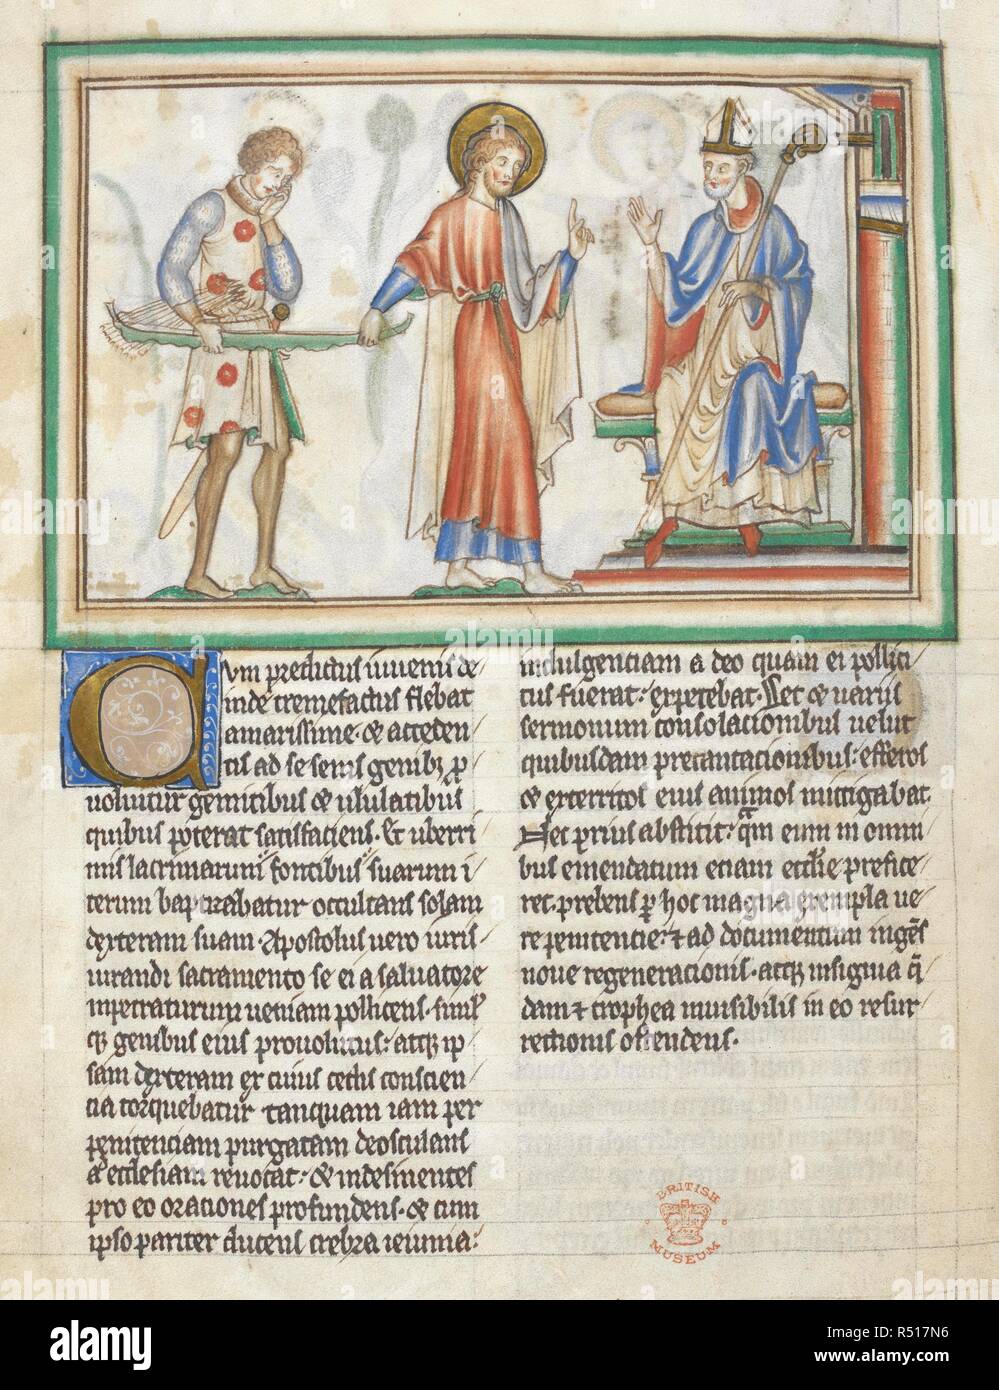 Cum predictus iuvenis de-
inde tremefactus flebat
amarissime. & acceden-
tis ad se senis genib; p
uoluitur gemitibus & ululatibus
quibus poterat satisfaciens. Et uberri
mis lacrimarum fontibus suarum i-
terum baptizabatur occultans solam
dexteram suam. Apostolus uero iuris
iurandi sacramento se ei a saluatore
impetraturum ueniam pollicens. simul
q; genibus eius prouolutus: atq; ip
sam dexteram ex cuius cedis conscien
cia torquebatur tanquam iam per
penitenciam purgatam deosculans
ad ecclesiam reuocat: & indesinentes
pro eo orationes profundens. & cum
ipso pariter ducens crebra ieiunia:
indulgenciam a deo quam ei pollici
tus fuerat: expetebat. Set & uariis
sermonum consolacionibus uelut
quibusdam precantacionibus: efferos
& exterritos eius animos mitigabat.
Nec prius abstitit: qm eum in omni
bus emendatum etiam ecclie prefice
ret. prebens p hoc magna exempla ue
re penitencie: & ad documentum ingens
noue regenerationis. atq; insignia q
dam & trophea inuisibilis in eo resur
rectionis ostendens.
BRITISH
MUSEUM
alamy
www.alamy.com
Image ID: R517N6